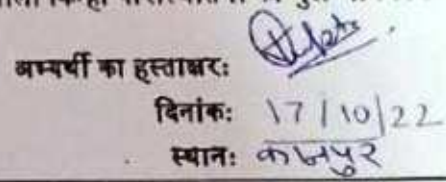 अभ्यर्थी का हस्ताक्षर:
दिनांक: 17/10/22
स्थान: कानपुर